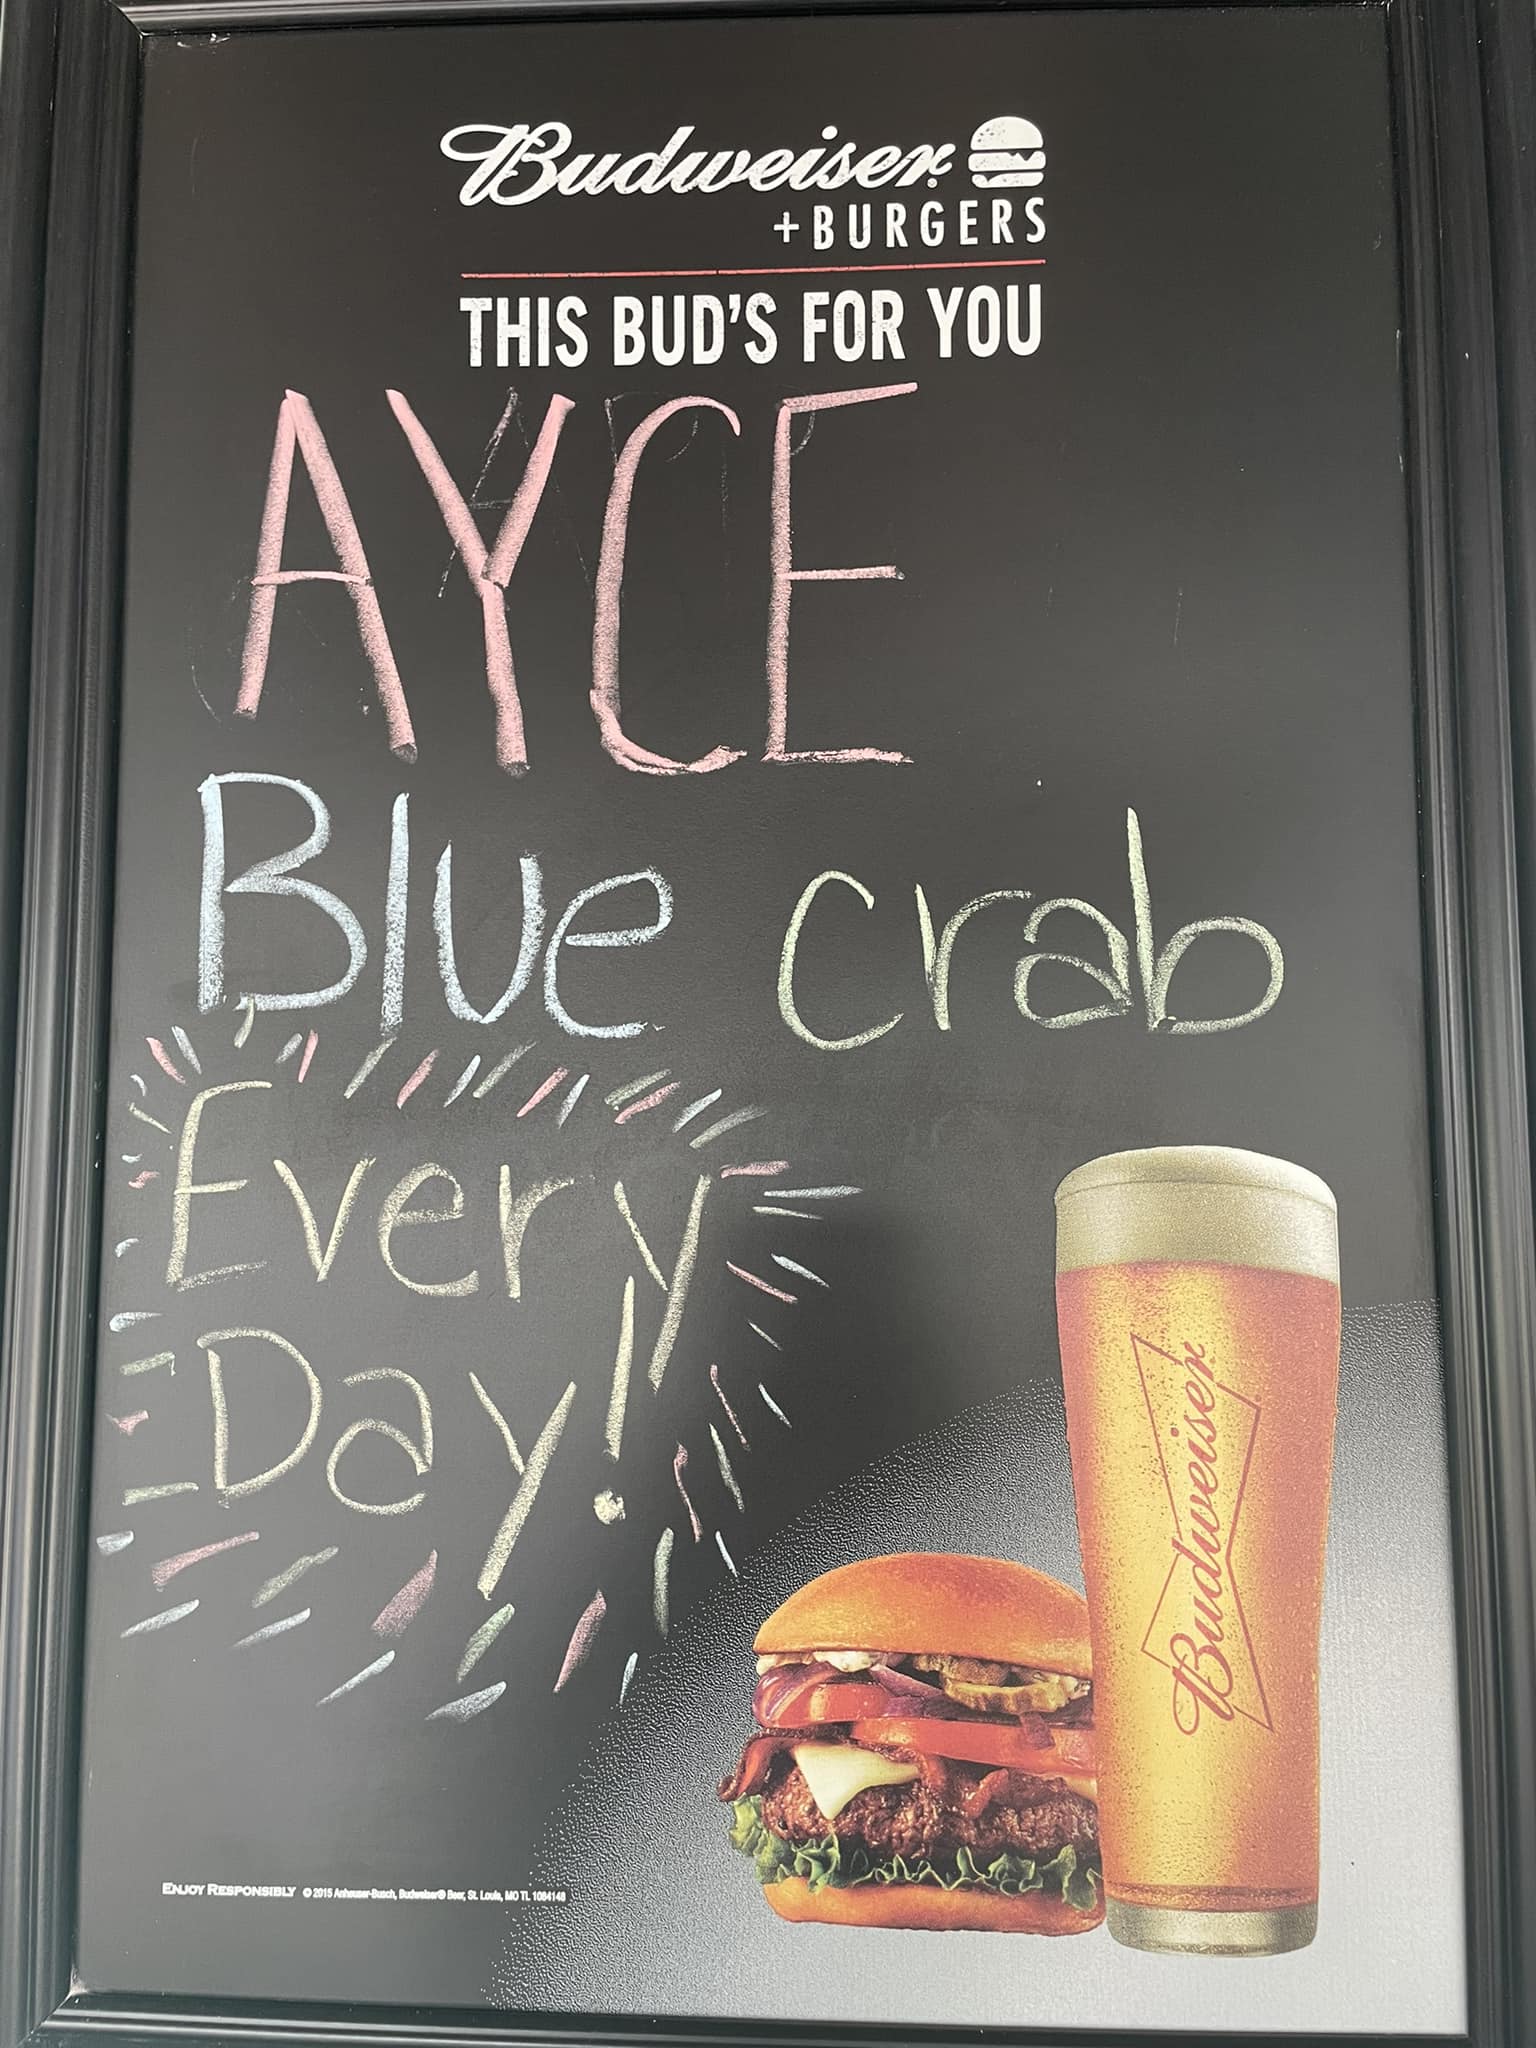 Budweiser
+BURGERS
THIS BUD'S FOR YOU
AYCE
Blue crab
Every
Day!
Budweiser
ENJOY RESPONSIBLY © 2015 Anheuser-Busch, Budweiser® Beer, St. Louis, MO TL 1084148